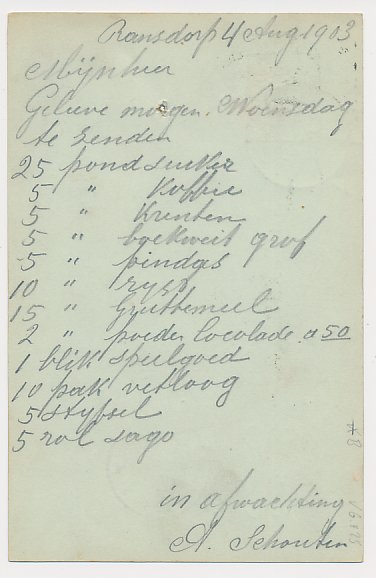 Ransdorp 4 Aug. 1903
Mijnheer
Gelieve morgen. Woensdag
te zenden
25 pond suiker
5 " Koffie
5 " Krenten
5 " boekweit grof
5 " pindas
10 " ryst
15 " Gruttemeel
2 " poeder Cocolade a 50
1 blik speelgoed
10 pak vetloog
5 stijfsel
5 rol sago
in afwachting
A. Schouten